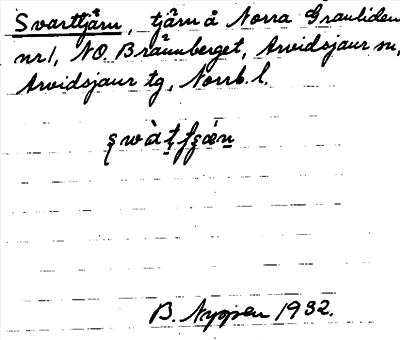 Svarttjärn, tjärn å Norra Granliden
nr 1, NO Brännberget, Arvidsjaur sn,
Arvidsjaur tg, Norrb. l.
B. Nygren 1932.